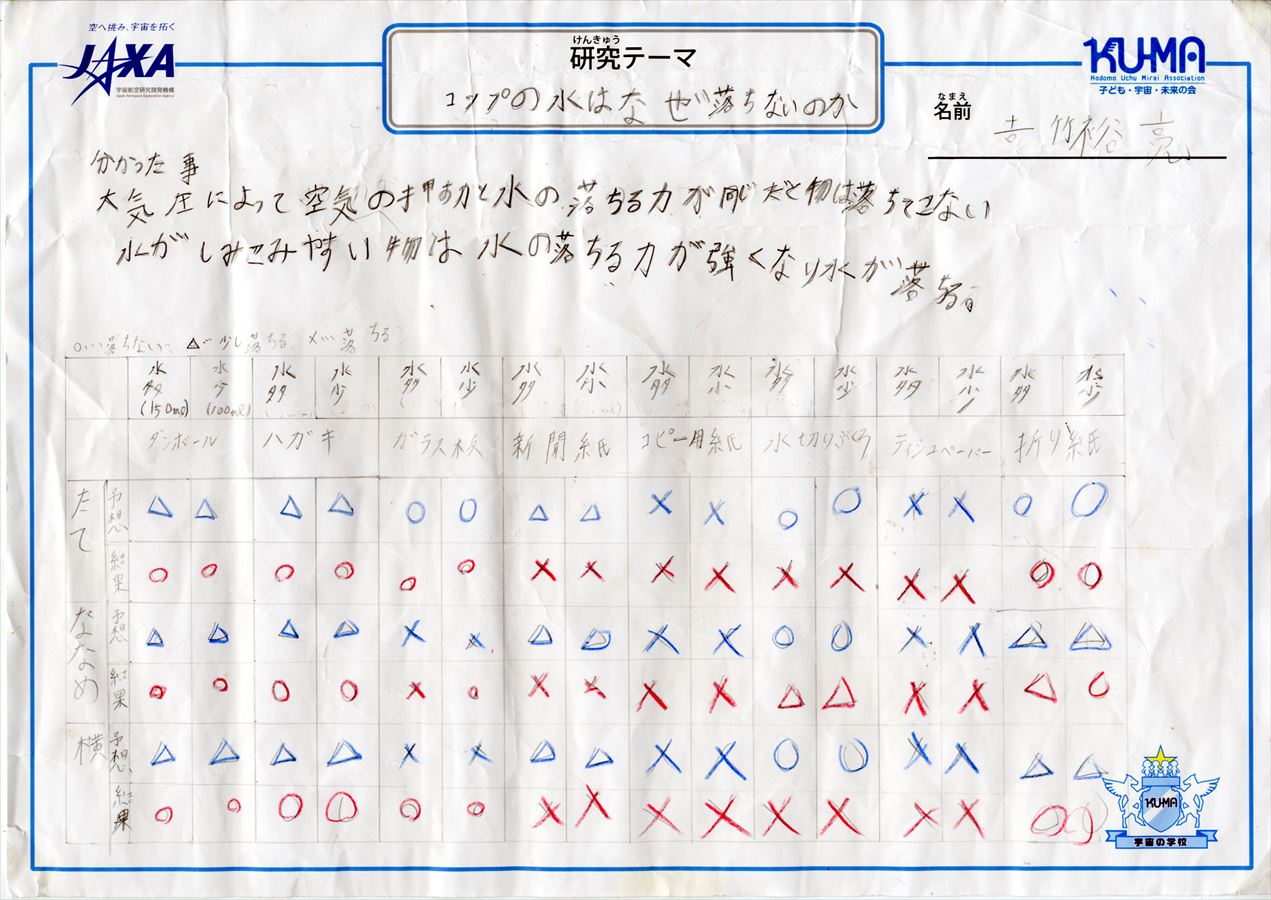 空へ挑み、宇宙を拓く
JAXA
宇宙航空研究開発機構
Japan Aerospace Exploration Agency
けんきゅう
研究テーマ
コップの水はなぜ落ちないのか
KU-MA
Kodomo Uchu Mirai Association
子ども・宇宙・未来の会
なまえ
名前
吉竹裕亮
分かった事
大気圧によって空気の押す力と水の落ちる力が同じだと物は落ちてこない
水がしみこみやすい物は水の落ちる力が強くなり水が落ちる。
○…落ちない △…少し落ちる ×…落ちる
水多(150ml) 水少(100ml) 水多 水少 水多 水少 水多 水少 水多 水少 水多 水少 水多 水少 水多 水少
ダンボール ハガキ ガラス板 新聞紙 コピー用紙 水切りぶくろ ティシュペーパー 折り紙
たて 予想 △ △ △ △ ○ ○ △ △ × × ○ ○ × × ○ ○
結果 ○ ○ ○ ○ ○ ○ × × × × × × × × ○ ○
ななめ 予想 △ △ △ △ × × △ △ × × ○ ○ × × △ △
結果 ○ ○ ○ ○ × ○ × × × × △ △ × × △ ○
横 予想 △ △ △ △ × × △ △ × × ○ ○ × × △ △
結果 ○ ○ ○ ○ ○ ○ × × × × × × × × ○ ○
KU-MA
宇宙の学校